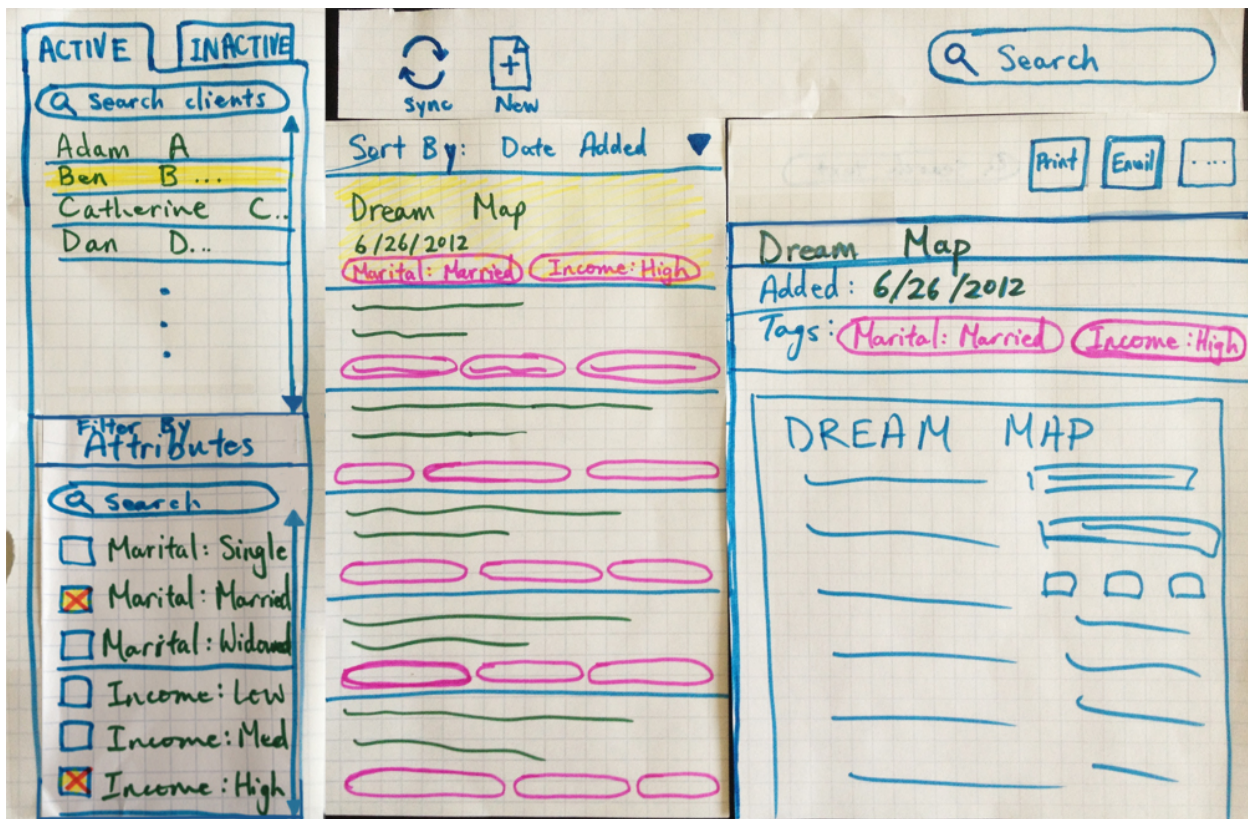 ACTIVE INACTIVE
Search clients
Adam A
Ben B ...
Catherine C..
Dan D...
Filter By
Attributes
Search
Marital: Single
Marital: Married
Marital: Widowed
Income: Low
Income: Med
Income: High
Sync New
Search
Sort By: Date Added
Dream Map
6/26/2012
Marital: Married Income: High
Print Email ....
Dream Map
Added: 6/26/2012
Tags: Marital: Married Income: High
DREAM MAP